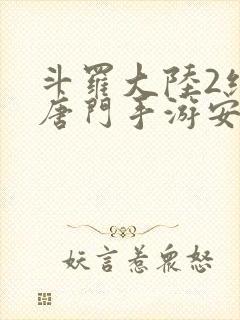 斗羅大陸2絕
唐門手游安
妖言惹眾怒